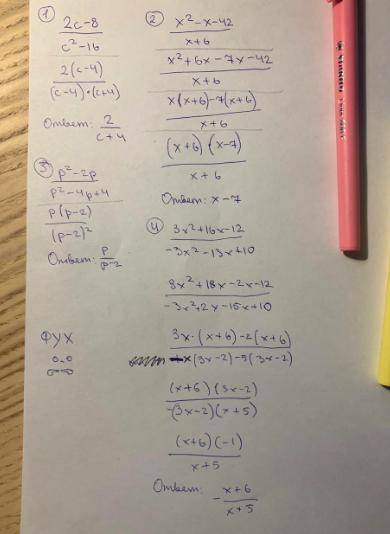 ①
2c-8
c²-16
2(c-4)
(c-4)·(c+4)
Ответ: 2/(c+4)
②
x²-x-42
x+6
x²+6x-7x-42
x+6
x(x+6)-7(x+6)
x+6
(x+6)·(x-7)
x+6
Ответ: x-7
③
p²-2p
p²-4p+4
p(p-2)
(p-2)²
Ответ: p/(p-2)
④
3x²+16x-12
-3x²-13x+10
3x²+18x-2x-12
-3x²+2x-15x+10
3x·(x+6)-2(x+6)
-x(3x-2)-5(3x-2)
(x+6)(3x-2)
-(3x-2)(x+5)
(x+6)(-1)
x+5
Ответ: -(x+6)/(x+5)
ФУХ